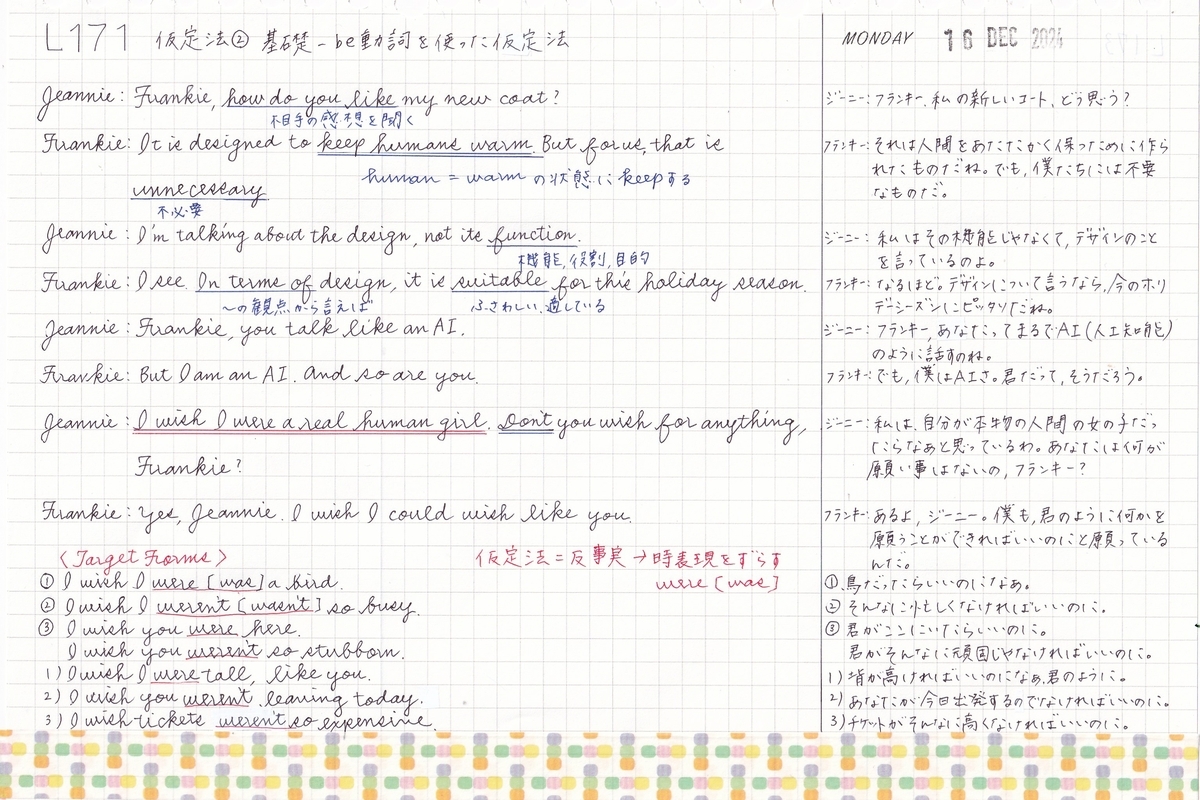 L171 仮定法② 基礎 - be動詞を使った仮定法
MONDAY 16 DEC 2024
Jeannie: Frankie, how do you like my new coat?
相手の感想を聞く
Frankie: It is designed to keep humans warm. But for us, that is
human = warm の状態に keepする
unnecessary
不必要
Jeannie: I'm talking about the design, not its function.
機能, 役割, 目的
Frankie: I see. In terms of design, it is suitable for this holiday season.
〜の観点から言えば ふさわしい, 適している
Jeannie: Frankie, you talk like an AI.
Frankie: But I am an AI. And so are you.
Jeannie: I wish I were a real human girl. Don't you wish for anything,
Frankie?
Frankie: Yes, Jeannie. I wish I could wish like you.
〈Target Forms〉
仮定法 = 反事実 → 時表現をずらす
were [was]
① I wish I were [was] a bird.
② I wish I weren't [wasn't] so busy.
③ I wish you were here.
I wish you weren't so stubborn.
1) I wish I were tall, like you.
2) I wish you weren't leaving today.
3) I wish tickets weren't so expensive.
ジーニー: フランキー、私の新しいコート、どう思う?
フランキー: それは人間をあたたかく保つために作ら
れたものだね。でも、僕たちには不要
なものだ。
ジーニー: 私はその機能じゃなくて、デザインのこと
を言っているのよ。
フランキー: なるほど。デザインについて言うなら、今のホリ
デーシーズンにピッタリだね。
ジーニー: フランキー、あなたってまるでAI(人工知能)
のように話すのね。
フランキー: でも、僕はAIさ。君だって、そうだろう。
ジーニー: 私は、自分が本物の人間の女の子だっ
たらなぁと思っているわ。あなたには何か
願い事はないの, フランキー?
フランキー: あるよ、ジーニー。僕も、君のように何かを
願うことができればいいのにと願っている
んだ。
①、鳥だったらいいのになぁ。
② そんなに忙しくなければいいのに。
③ 君がここにいたらいいのに。
君がそんなに頑固じゃなければいいのに。
1) 背が高ければいいのになぁ, 君のように。
2) あなたが今日出発するのでなければいいのに。
3) チケットがそんなに高くなければいいのに。